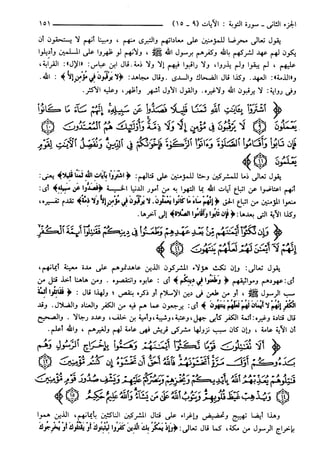 الجزء الثانى - سورة التوبة : الآيات (٩ - ١٥) ١٥١
يقول تعالى محرضا للمؤمنين على معاداتهم والتبرى منهم ، ومبينا أنهم لا يستحقون أن
يكون لهم عهد لشركهم بالله وكفرهم برسول الله ﷺ ، ولأنهم لو ظهروا على المسلمين وأديلوا
عليهم ، لم يبقوا ولم يذروا، ولا راقبوا فيهم إلا ولا ذمة. قال ابن عباس: «الإل»: القرابة،
و«الذمة»: العهد. وكذا قال الضحاك والسدى . وقال مجاهد: ﴿ لا يرقبون في مؤمن إلا ﴾ : الله.
وفى رواية: لا يرقبون الله ولاغيره. والقول الأول أشهر وأظهر، وعليه الأكثر.
﴿ اشْتَرَوْا بِآيَاتِ اللَّهِ ثَمَنًا قَلِيلًا فَصَدُّوا عَن سَبِيلِهِ إِنَّهُمْ سَاءَ مَا كَانُوا
يَعْمَلُونَ ﴿٩﴾ لَا يَرْقُبُونَ فِي مُؤْمِنٍ إِلًّا وَلَا ذِمَّةً وَأُولَٰئِكَ هُمُ الْمُعْتَدُونَ ﴿١٠﴾
فَإِن تَابُوا وَأَقَامُوا الصَّلَاةَ وَآتَوُا الزَّكَاةَ فَإِخْوَانُكُمْ فِي الدِّينِ وَنُفَصِّلُ الْآيَاتِ لِقَوْمٍ
يَعْلَمُونَ ﴿١١﴾ ﴾
يقول تعالى ذما للمشركين وحثا للمؤمنين على قتالهم: ﴿ اشتروا بآيات الله ثمنا قليلا ﴾ يعنى:
أنهم اعتاضوا عن اتباع آيات الله بما التهوا به من أمور الدنيا الخسيسة ﴿ فصدوا عن سبيله ﴾ أى:
منعوا المؤمنين من اتباع الحق ﴿ إنهم ساء ما كانوا يعملون. لا يرقبون في مؤمن إلا ولا ذمة ﴾ تقدم تفسيره،
وكذا الآية التى بعدها: ﴿ فإن تابوا وأقاموا الصلاة ﴾ إلى آخرها.
﴿ وَإِن نَّكَثُوا أَيْمَانَهُم مِّن بَعْدِ عَهْدِهِمْ وَطَعَنُوا فِي دِينِكُمْ فَقَاتِلُوا أَئِمَّةَ الْكُفْرِ
إِنَّهُمْ لَا أَيْمَانَ لَهُمْ لَعَلَّهُمْ يَنتَهُونَ ﴿١٢﴾ ﴾
يقول تعالى: وإن نكث هؤلاء المشركون الذين عاهدتموهم على مدة معينة أيمانهم،
أى: عهودهم ومواثيقهم ﴿ وطعنوا في دينكم ﴾ أى : عابوه وانتقصوه . ومن هاهنا أخذ قتل من
سب الرسول ﷺ ، أو من طعن فى دين الإسلام أو ذكره بنقص ؛ ولهذا قال : ﴿ فقاتلوا أئمة
الكفر إنهم لا أيمان لهم لعلهم ينتهون ﴾ أى: يرجعون عما هم فيه من الكفر والعناد والضلال. وقد
قال قتادة وغيره: أئمة الكفر كأبى جهل، وعتبة، وشيبة، وأمية بن خلف، وعدد رجالا . والصحيح
أن الآية عامة ، وإن كان سبب نزولها مشركى قريش فهى عامة لهم ولغيرهم ، والله أعلم.
﴿ أَلَا تُقَاتِلُونَ قَوْمًا نَّكَثُوا أَيْمَانَهُمْ وَهَمُّوا بِإِخْرَاجِ الرَّسُولِ وَهُم
بَدَءُوكُمْ أَوَّلَ مَرَّةٍ أَتَخْشَوْنَهُمْ فَاللَّهُ أَحَقُّ أَن تَخْشَوْهُ إِن كُنتُم مُّؤْمِنِينَ ﴿١٣﴾
قَاتِلُوهُمْ يُعَذِّبْهُمُ اللَّهُ بِأَيْدِيكُمْ وَيُخْزِهِمْ وَيَنصُرْكُمْ عَلَيْهِمْ وَيَشْفِ صُدُورَ قَوْمٍ مُّؤْمِنِينَ
﴿١٤﴾ وَيُذْهِبْ غَيْظَ قُلُوبِهِمْ وَيَتُوبُ اللَّهُ عَلَىٰ مَن يَشَاءُ وَاللَّهُ عَلِيمٌ حَكِيمٌ ﴿١٥﴾ ﴾
وهذا أيضا تهييج وتحضيض وإغراء على قتال المشركين الناكثين بأيمانهم، الذين هموا
بإخراج الرسول من مكة، كما قال تعالى: ﴿ وإذ يمكر بك الذين كفروا ليثبتوك أو يقتلوك أو يخرجوك